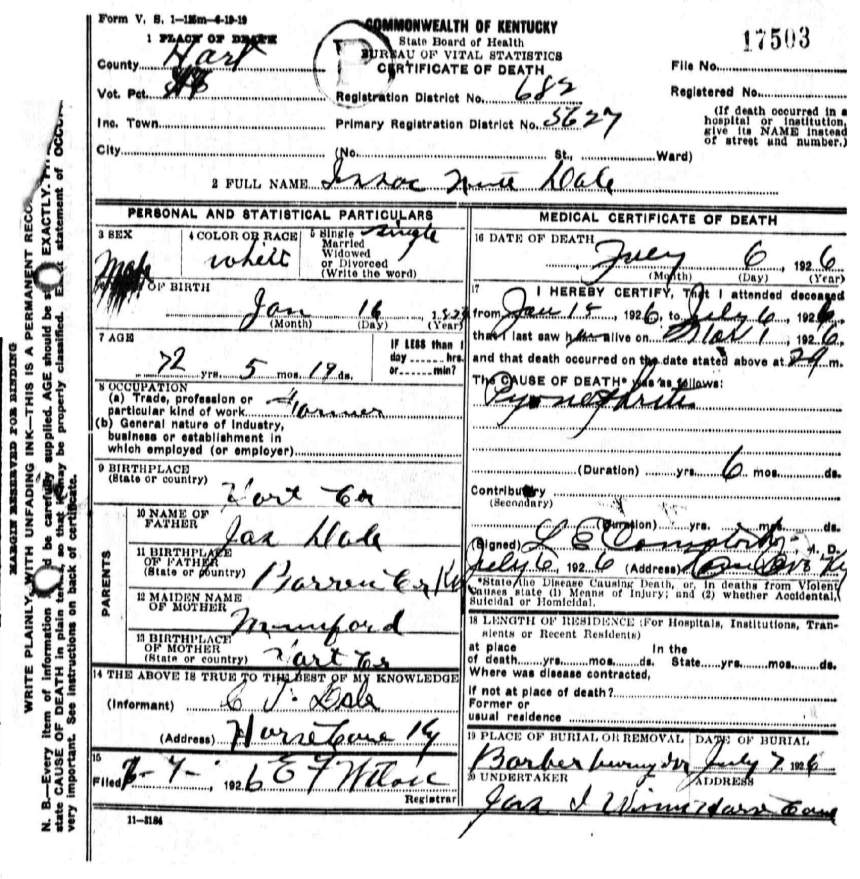 Form V. S. 1—15m—4-19-19
COMMONWEALTH OF KENTUCKY
State Board of Health
BUREAU OF VITAL STATISTICS
CERTIFICATE OF DEATH
17503
1 PLACE OF DEATH
County Hart
File No.
Vot. Pct.
Registration District No. 682
Registered No.
Inc. Town
Primary Registration District No. 5627
(If death occurred in a
hospital or institution,
give its NAME instead
of street and number.)
City (No. St., Ward)
2 FULL NAME Isaac Dale
PERSONAL AND STATISTICAL PARTICULARS
3 SEX
Male
4 COLOR OR RACE
White
5 Single
Married
Widowed
or Divorced
(Write the word)
Single
OF BIRTH
Jan 16
(Month) (Day) (Year)
7 AGE
72 yrs. 5 mos. 19 ds.
IF LESS than 1
day hrs.
or min?
8 OCCUPATION
(a) Trade, profession or
particular kind of work Farmer
(b) General nature of industry,
business or establishment in
which employed (or employer)
9 BIRTHPLACE
(State or country)
Hart Co
PARENTS
10 NAME OF
FATHER
Jas Dale
11 BIRTHPLACE
OF FATHER
(State or country)
Barren Co Ky
12 MAIDEN NAME
OF MOTHER
Mumford
13 BIRTHPLACE
OF MOTHER
(State or country)
Hart Co
14 THE ABOVE IS TRUE TO THE BEST OF MY KNOWLEDGE
(Informant) Dale
(Address) Horse Cave Ky
15
Filed 7-7- 1926 E F Wilson
Registrar
11—3184
MEDICAL CERTIFICATE OF DEATH
16 DATE OF DEATH
July 6, 1926
(Month) (Day) (Year)
17 I HEREBY CERTIFY, That I attended deceased
from Jan 15, 1926, to July 6, 1926,
that I last saw him alive on 1926,
and that death occurred on the date stated above at m.
The CAUSE OF DEATH* was as follows:
Pyonephritis
(Duration) yrs. 6 mos. ds.
Contributory
(Secondary)
(Duration) yrs. mos. ds.
(Signed) L E M. D.
July 6, 1926 (Address) Ky
*State the Disease Causing Death, or, in deaths from Violent
Causes state (1) Means of Injury; and (2) whether Accidental,
Suicidal or Homicidal.
18 LENGTH OF RESIDENCE (For Hospitals, Institutions, Tran-
sients or Recent Residents)
at place In the
of death yrs. mos. ds. State yrs. mos. ds.
Where was disease contracted,
If not at place of death?
Former or
usual residence
19 PLACE OF BURIAL OR REMOVAL
DATE OF BURIAL
July 7 1926
20 UNDERTAKER
ADDRESS
Horse Cave
MARGIN RESERVED FOR BINDING
WRITE PLAINLY, WITH UNFADING INK—THIS IS A PERMANENT RECO
N. B.—Every item of information be carefully supplied. AGE should be EXACTLY.
state CAUSE OF DEATH in plain terms, so that it may be properly classified. statement of OCCU
very important. See instructions on back of certificate.